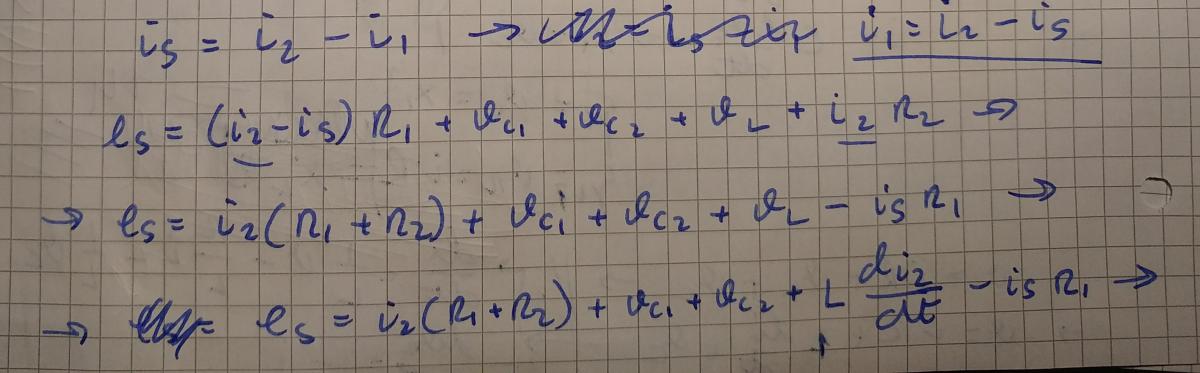 i₅ = i₂ - i₁ → i₁ = i₂ - i₅
e₅ = (i₂ - i₅) R₁ + v_C₁ + v_C₂ + v_L + i₂ R₂ →
→ e₅ = i₂ (R₁ + R₂) + v_C₁ + v_C₂ + v_L - i₅ R₁ →
→ = e₅ = i₂ (R₁ + R₂) + v_C₁ + v_C₂ + L di₂/dt - i₅ R₁ →